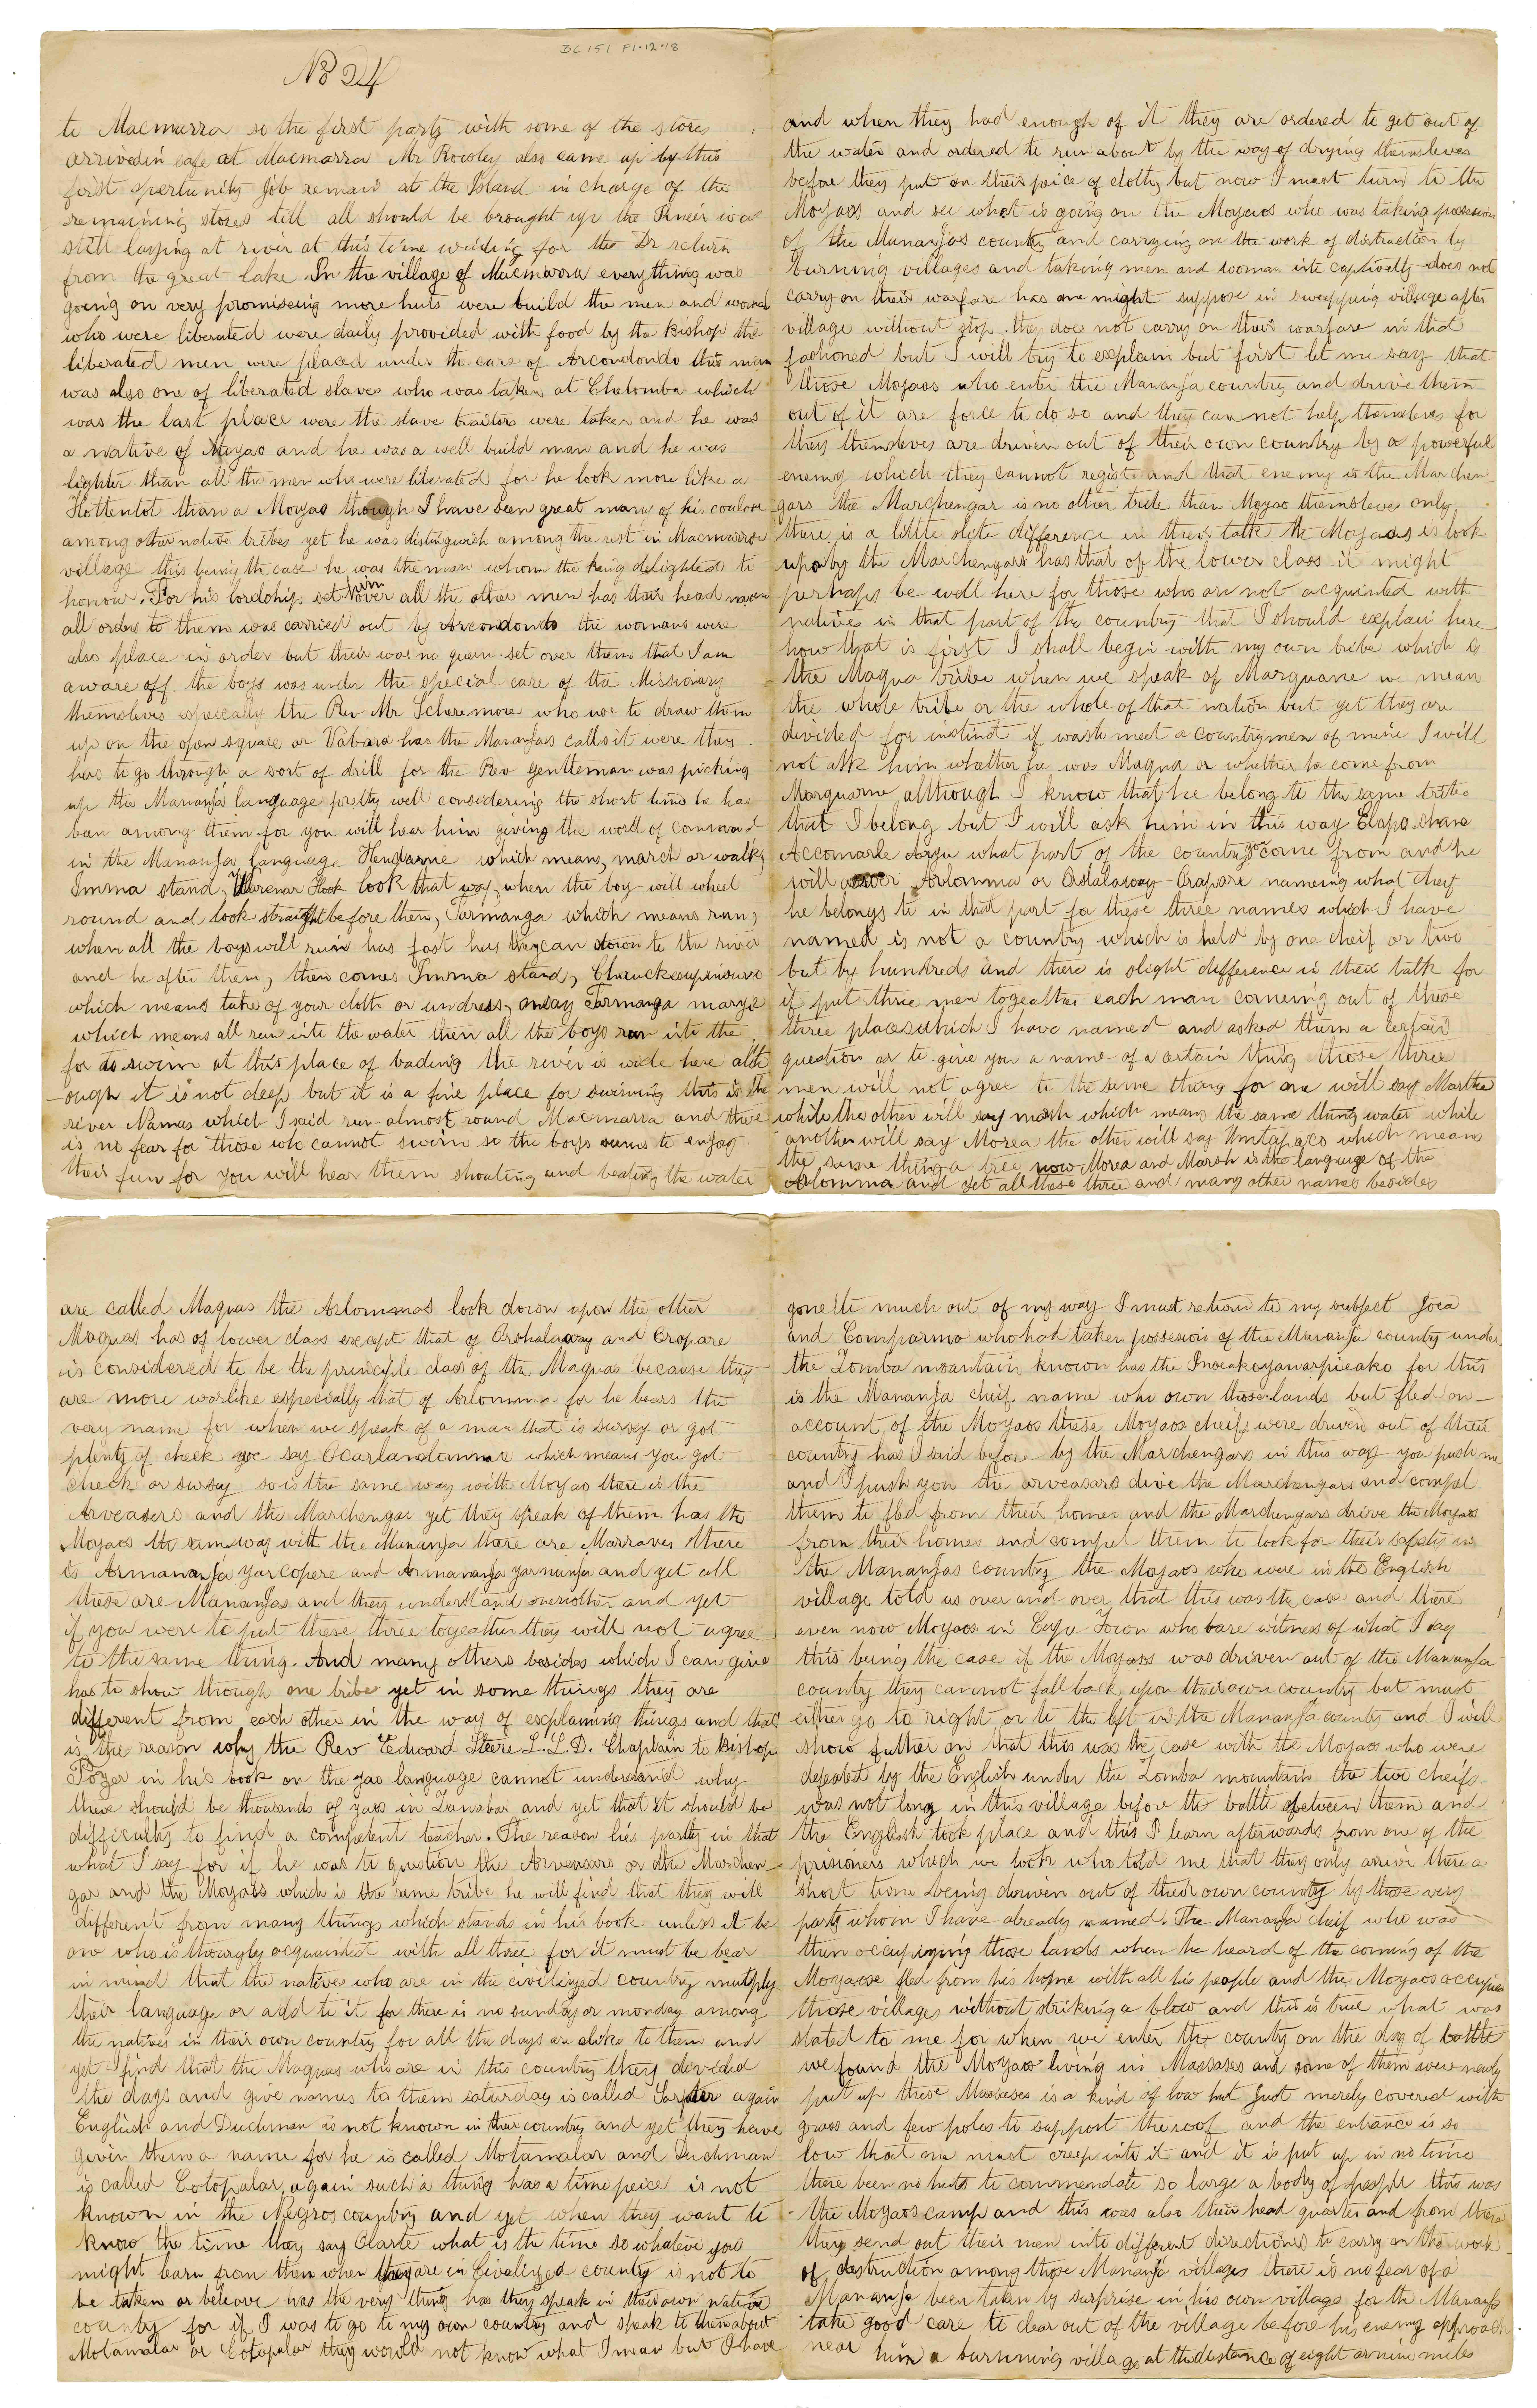 BC 151 F1.12.18
No 24
to Macmarra so the first party with some of the stores
arrivedin safe at Macmarra Mr Rowley also came up by this
first opertunity Job remain at the Island in charge of the
remaining stores till all should be brought up the Pineir was
still laying at river at this time waiding for the Dr return
from the great lake In the village of Macmarra everything was
going on very promiseing more huts were build the men and woman
who were liberated were daily provided with food by the Bishop the
liberated men were placed under the care of Arcondondo this man
was also one of liberated slaves who was taken at Chelomba which
was the last place were the slave traitors were taken and he was
a native of Moyao and he was a well build man and he was
lighter than all the men who were liberated for he look more like a
Hottentot than a Moyao though I have seen great many of his coulore
among other native tribes yet he was distinguish among the rest in Macmarra
village this being the case he was the man whom the king delighted to
honour. For his lordship set him over all the other men has their head
all orders to them was carried out by Arcondondo the womans were
also place in order but their was no queen set over them that I am
aware off the boys was under the special care of the Missionary
themsleves especially the Rev Mr Scheremore who use to draw them
up on the open square or Vabara has the Mananjas calls it were they
has to go through a sort of drill for the Rev gentleman was picking
up the Mananja language pretty well considering the short time he has
ban among them for you will hear him giving the word of command
in the Mananja language Hendarne which means, march or walk,
Imma stand, look that way, when the boy will wheel
round and look straight before them, Tarmanga which means run,
when all the boys will run has fast has they can down to the river
and he after them, then comes Imma stand, Chouckesupinsuro
which means take of your cloth or undress, Tarmanga marye
which means all run into the water then all the boys run into the
for to swim at this place of bading the river is wide here alth
-ough it is not deep but it is a fine place for swiming this is the
river Namas which I said run almost round Macmarra and there
is no fear for those who cannot swim so the boys seems to enjoy
their fun for you will hear them shouting and beating the water
and when they had enough of it they are ordered to get out of
the water and ordered to run about by the way of drying themsleves
before they put on their peice of cloth, but now I must turn to the
Moyaos and see what is going on the Moyaos who was taking possesion
of the Mananjas country and carrying on the work of distraction by
burning villages and taking men and woman into captivelty does not
carry on their warfare has one might suppose in sweepping village after
village without stop. they doe not carry on their warfare in that
fashoned but I will try to explain but first let me say that
those Moyaos who enter the Mananja country and drive them
out of it are force to do so and they can not help themsleves for
they themsleves are driven out of their own country by a powerful
enemy which they cannot registe and that enemy is the Marchen
gars the Marchengar is no other tride than Moyao themsleves only
there is a little slite difference in their talk the Moyaos is look
upon by the Marchengars has that of the lower class it might
perhaps be well here for those who are not acquinted with
natives in that part of the country that I should explain here
how that is first I shall begin with my own tribe which is
the Maqua tribe when we speak of Marquane we mean
the whole tribe or the whole of that nation but yet they are
divided for instind if waste meet a countrymen of mine I will
not ask him whather he was Maqua or whether he come from
Marquarne although I know that he belong to the same tribe
that I belong but I will ask him in this way Elapo shane
Accomarle Aryu what part of the country you come from and he
will Arlomma or Orshalaway Erapare nameing what cheif
he belongs to in that part for these three names which I have
named is not a country which is held by one cheif or two
but by hundreds and there is slight difference in their talk for
if put three men togeather each man comeing out of these
three places which I have named and asked them a certain
question or to give you a name of a certain thing those three
men will not agree to the same thing for one will say Marthe
while the other will say mash which means the same thing water while
another will say Morea the other will say Umtapaco which means
the same thing a tree now Morea and Marsh is the language of the
Arlomma and yet all these three and many other names besides
are called Maquas the Arlommas look down upon the other
Maquas has of lower class except that of Orshalaway and Eropare
is considered to be the principle class of the Maquas because they
are more warlike especially that of Arlomma for he bears the
very name for when we speak of a man that is sursey or got
plenty of cheek we say Ocurlandomma which means you got
cheek or sursay so is the same way with Moyao there is the
Arveasers and the Marchengar yet they speak of them has the
Moyaos the sam way with the Mananja there are Marraves there
is Armananja yarcopere and Armananja yarnunja and yet all
these are Mananjas and they understand oneother and yet
if you were to put these three togeather they will not agree
to the same thing. And many others besides which I can give
has to show though one tribe yet in some things they are
different from each other in the way of explaining things and that
is the reason why the Rev Edward Steere L.L.D. Chaplain to Bishop
Tozer in his book on the yao language cannot understand why
there should be thousands of yaos in Zanabar and yet that it should be
difficulty to find a competent teacher. The reason lies partly in that
what I say for if he was to question the Arveasars or the Marchen
gar and the Moyaos which is the same tribe he will find that they will
different from many things which stands in his book unless it be
one who is thourgly acquainted with all three for it must be bear
in mind that the native who are in the civilized country mutply
their language or add to it for there is no sunday or monday among
the natives in their own country for all the days are alike to them and
yet I find that the Maquas who are in this country they devided
the days and give names to them saturday is called Sarpter again
English and Duchman is not known in their country and yet they have
given them a name for he is called Molamalar and Duchman
is called Cotopalar again such a thing has a time peice is not
known in the Negros country and yet when they want to
know the time they say Olarte what is the time so whateve you
might learn from them when they are in Civalized country is not to
be taken or beleove has the very thing has they speak in their own native
country for if I was to go to my own country and speak to them about
Molamalar or Cotopalar they would not know what I mean but I have
gone to much out of my way I must return to my subject Joea
and Comparma who had taken possesion of the Mananja country under
the Zomba mountain known has the for this
is the Mananja cheif name who own those lands but fled on
account of the Moyaos these Moyaos cheifs were driven out of their
country has I said before by the Marchengars in this way you push me
and I push you the arveasars dive the Marchengars and compel
them to fled from their homes and the Marchengars drive the Moyaos
from their homes and compel them to look for their safety in
the Mananjas country the Moyaos who were in the English
village told us over and over that this was the case and there
even now Moyaos in Cape Town who bare witness of what I say
this being the case if the Moyaos was driven out of the Mananja
county they cannot fall back upon their own country but must
either go to right or to the left in the Mananja county and I will
show futher on that this was the case with the Moyaos who were
defeated by the English under the Zomba mountain the two cheifs
was not long in this village before the battle between them and
the English took place and this I learn afterwards from one of the
prisioners which we took who told me that they only arrive there a
short time being driven out of their own county by those very
party whom I have already named. The Mananja cheif who was
then occupinying those lands when he heard of the coming of the
Moyaose fled from his home with all his people and the Moyaos occupies
those villages without striking a blow and this is true what was
stated to me for when we enter the county on the day of battle
we found the Moyaos living in Massases and some of them were newly
put up these Massases is a kind of low hut Just merely covered with
grass and few poles to support the roof and the entrance is so
low that one must creep into it and it is put up in no time
there been no huts to commendate so large a body of people this was
the Moyaos camp and this was also their head quarter and from there
they send out their men into different directions to carry on the work
of destruction among those Mananja villages there is no fear of a
Mananja been taken by surprise in his own village for the Mananja
take good care to clear out of the village before his enemy approach
near him a burnning village at the distance of eight or nine miles